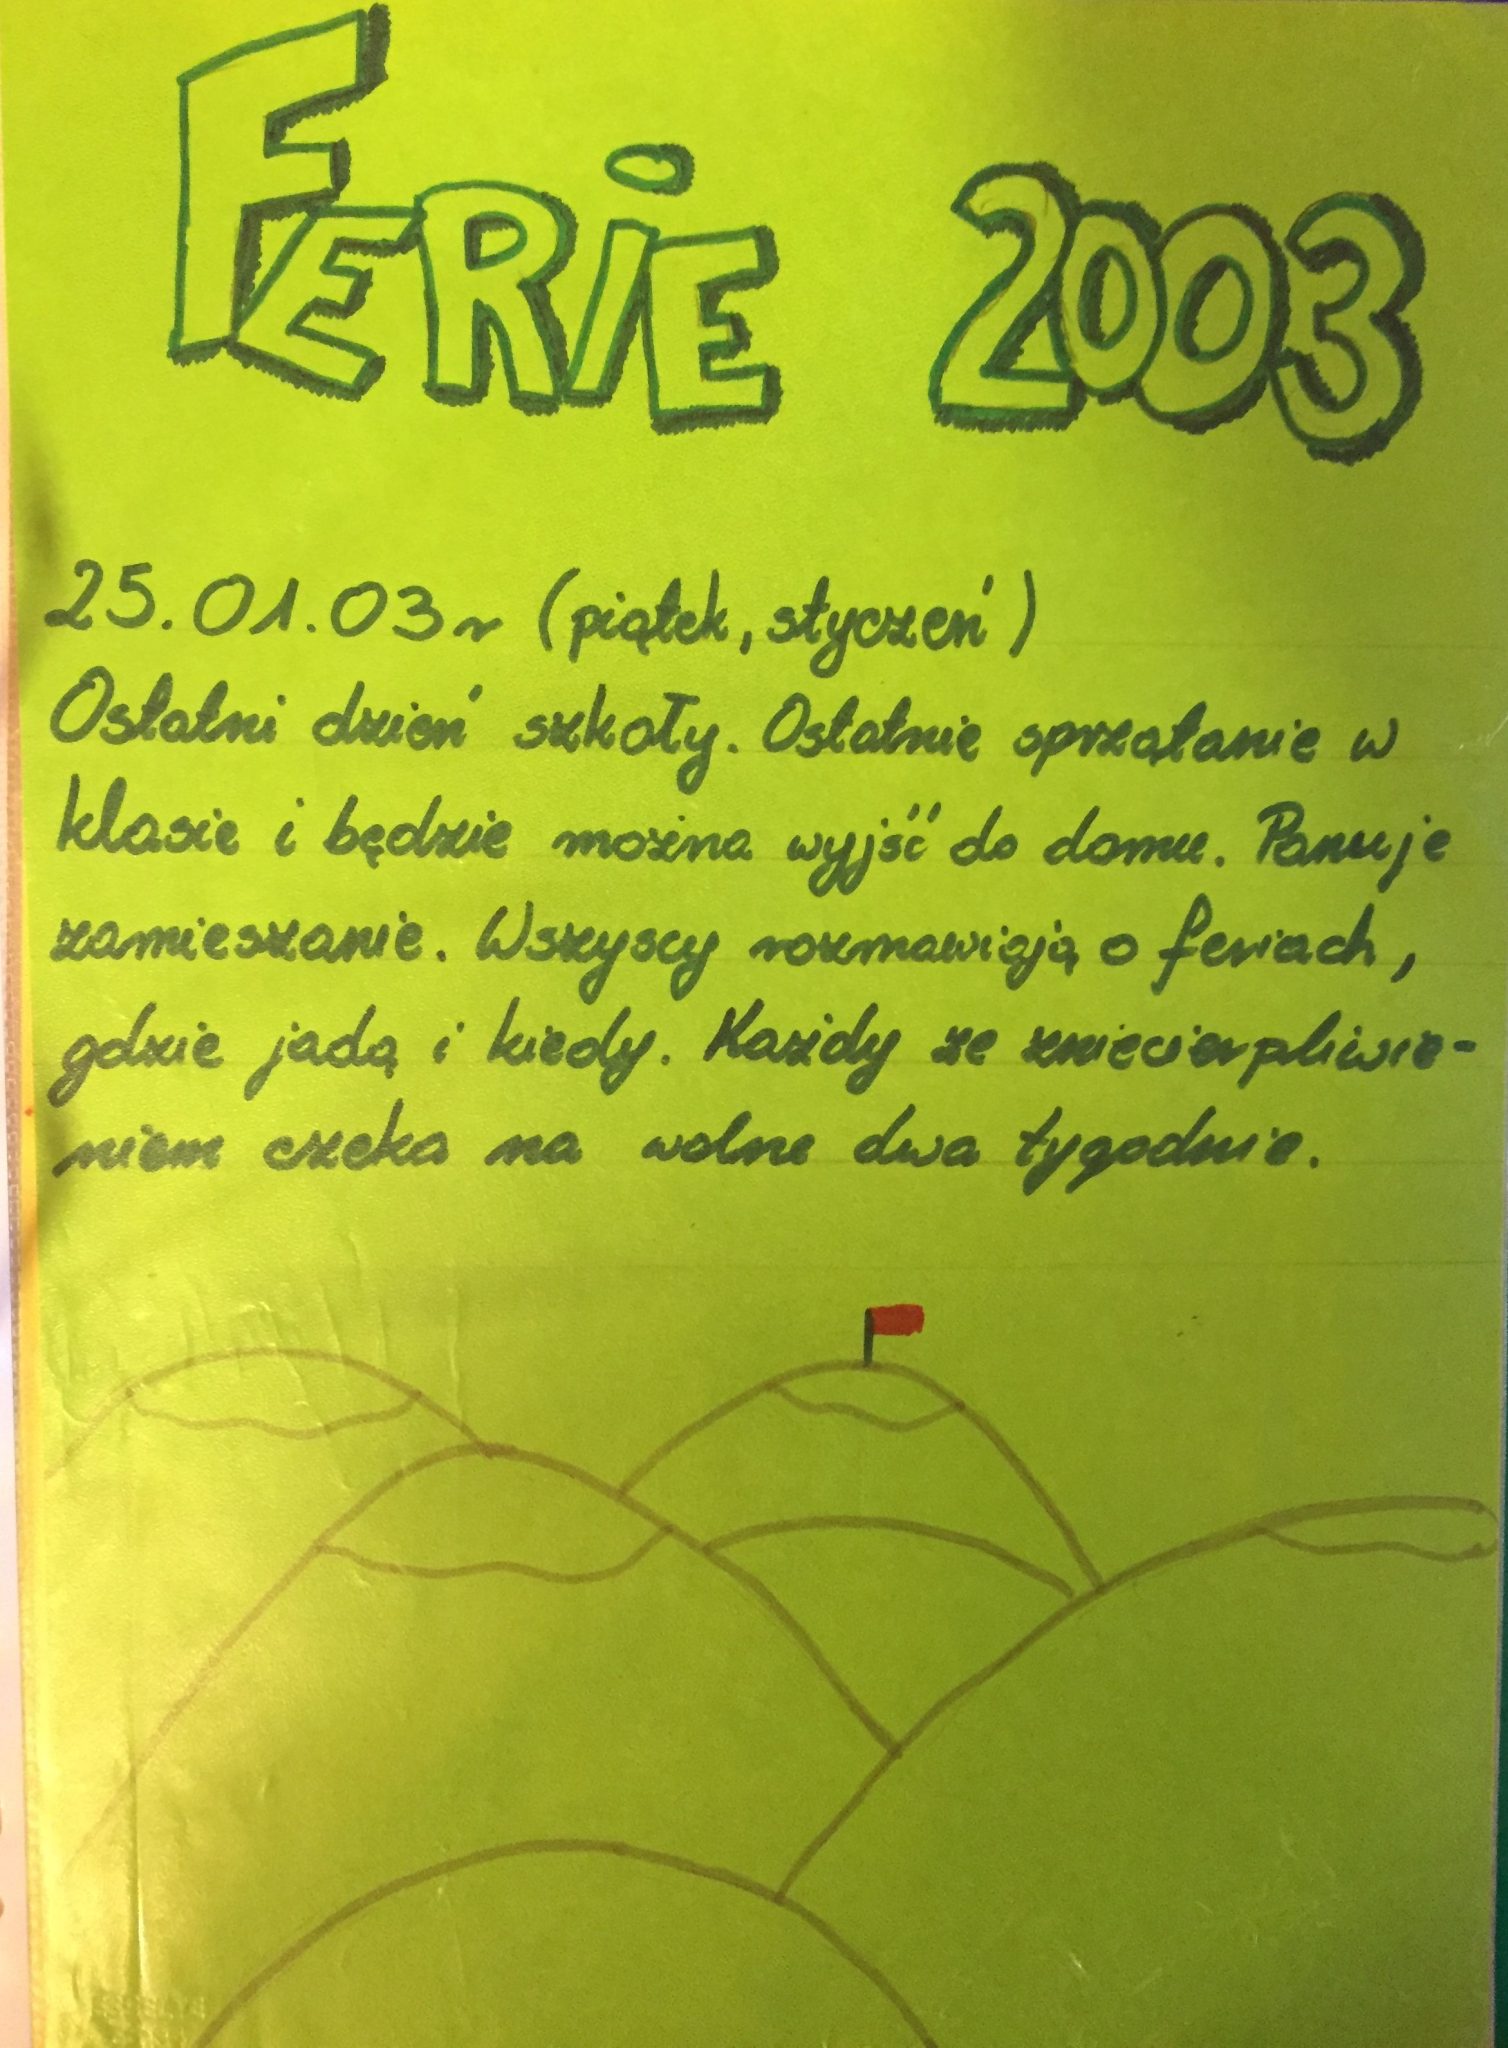 FERiE 2003
25.01.03r (piątek, styczeń)
Ostatni dzień szkoły. Ostatnie sprzątanie w
klasie i będzie można wyjść do domu. Panuje
zamieszanie. Wszyscy rozmawiają o feriach,
gdzie jadą i kiedy. Każdy ze zniecierpliwie-
niem czeka na wolne dwa tygodnie.